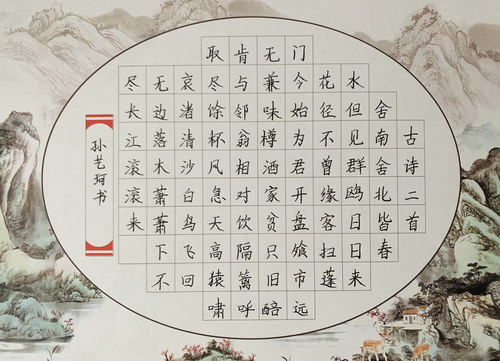 古诗二首
舍南舍北皆春
水但见群鸥日日来
花径不曾缘客扫蓬
门今始为君开盘飧市远
无兼味樽酒家贫只旧醅
肯与邻翁相对饮隔篱呼
取尽馀杯风急天高猿啸
哀渚清沙白鸟飞回
无边落木萧萧下不
尽长江滚滚来
孙艺珂书